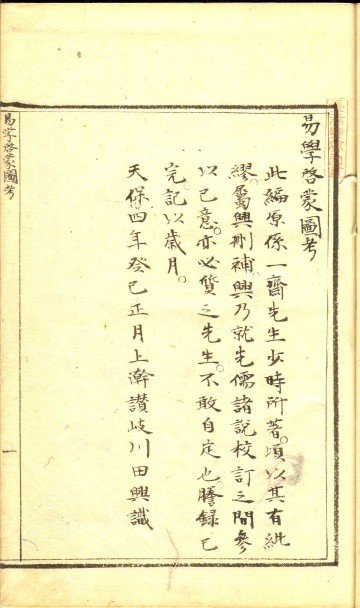 易學啓蒙圖考
此編原係一齋先生少時所著。頃以其有紕
繆。屬興刪補。興乃就先儒諸說校訂之。間參
以己意。亦必質之先生。不敢自定也。謄錄已
完。記以歲月。
天保四年癸巳正月上澣讃岐川田興識
易学啓蒙圖考
一